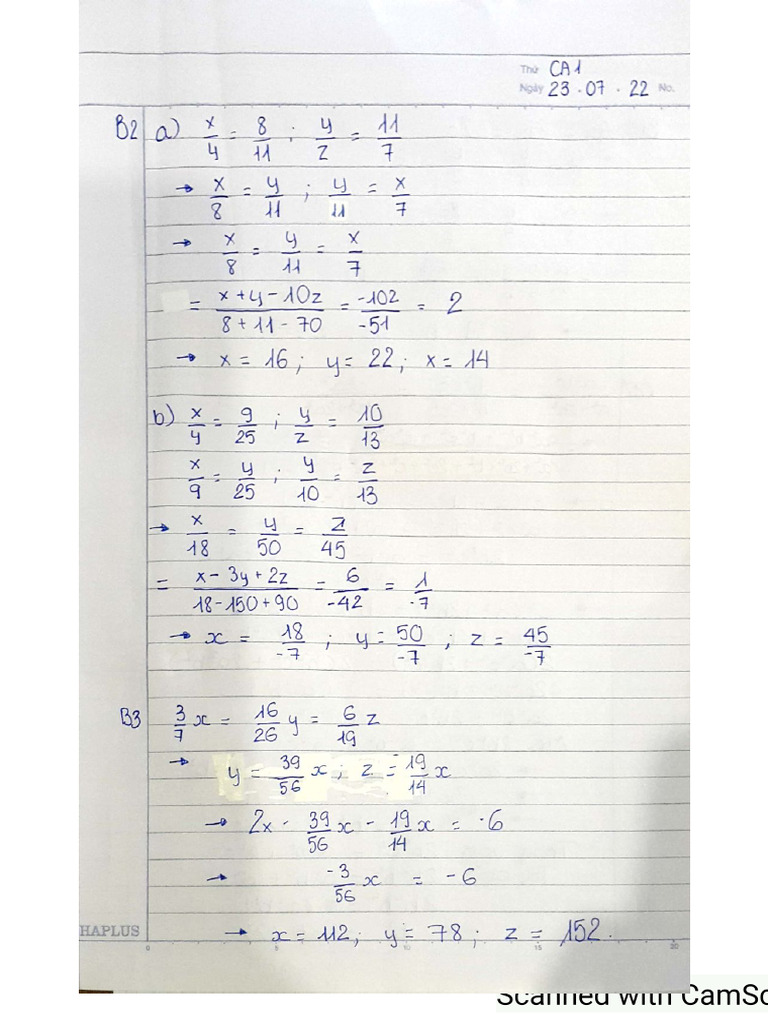 Thứ CA1
Ngày 23 . 07 . 22 No.
B2 a) x/4 = 8/11 ; y/z = 11/7
→ x/8 = y/11 ; y/11 = x/7
→ x/8 = y/11 = x/7
= (x+y-10z)/(8+11-70) = -102/-51 = 2
→ x = 16 ; y = 22 ; x = 14
b) x/4 = 9/25 ; y/z = 10/13
x/9 = y/25 ; y/10 = z/13
→ x/18 = y/50 = z/45
= (x-3y+2z)/(18-150+90) = 6/-42 = 1/-7
→ x = 18/-7 ; y = 50/-7 ; z = 45/-7
B3 3/7 x = 16/26 y = 6/19 z
→ y = 39/56 x ; z = 19/14 x
→ 2x - 39/56 x - 19/14 x = -6
→ -3/56 x = -6
→ x = 112 ; y = 78 ; z = 152.
HAPLUS
0 5 10 15 20
Scanned with CamSc